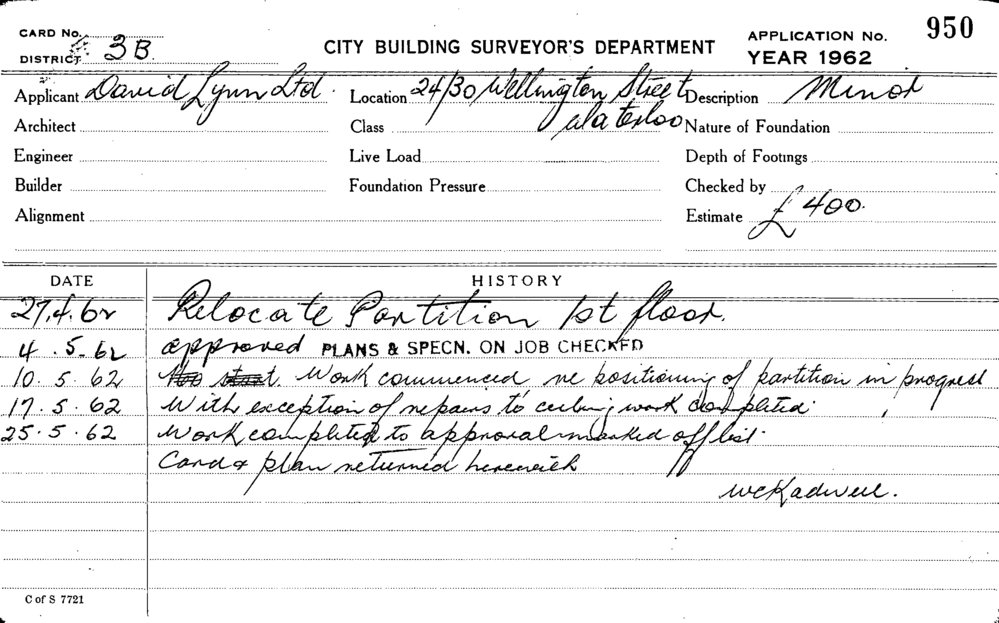 CARD No.
DISTRICT 3B
CITY BUILDING SURVEYOR'S DEPARTMENT
APPLICATION No. 950
YEAR 1962
Applicant David Lynn Ltd. Location 24/30 Wellington Street Description Minor
Architect Class Waterloo Nature of Foundation
Engineer Live Load Depth of Footings
Builder Foundation Pressure Checked by
Alignment Estimate £400.
DATE HISTORY
27.4.62 Relocate Partition 1st floor.
4.5.62 approved PLANS & SPECN. ON JOB CHECKED
10.5.62 No start. Work commenced re positioning of partition in progress
17.5.62 With exception of repairs to ceiling work completed.
25.5.62 Work completed to approval marked off list.
Card & plan returned herewith
C of S 7721